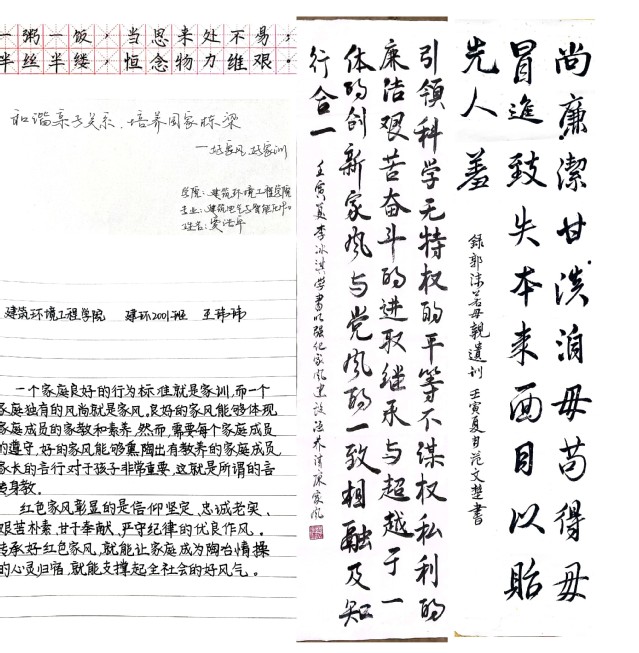 一粥一饭，当思来处不易；
半丝半缕，恒念物力维艰。
和谐亲子关系，培养国家栋梁
家风 家训
学院：建筑环境工程学院
专业：建筑电气与智能化
姓名：
建筑环境工程学院 建环2001班 王玮玮
一个家庭良好的行为标准就是家训，而一个
家庭独有的风尚就是家风。良好的家风能够体现
家庭成员的家教和素养。然而，需要每个家庭成员
的遵守，好的家风能够熏陶出有教养的家庭成员
家长的言行对于孩子非常重要，这就是所谓的言
传身教。
红色家风彰显的是信仰坚定、忠诚老实、
艰苦朴素、甘于奉献、严守纪律的优良作风。
传承好红色家风，就能让家庭成为陶冶情操
的心灵归宿，就能支撑起全社会的好风气。
引领科学无特权的平等不谋权私利的
廉洁艰苦奋斗的进取继承与超越于一
体的创新家风与党风的一致相融及知
行合一
壬寅夏李冰 书以强化家风建设 养清廉家风
尚廉潔甘淡泊毋苟得毋
冒進致失本来面目以貽
先人羞
録郭沫若母親遺訓 壬寅夏月范文楚書